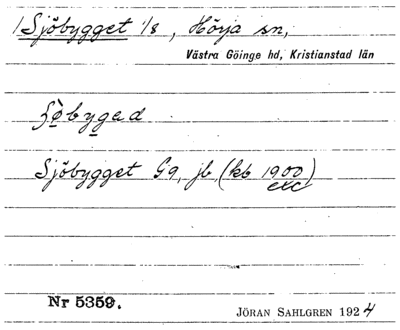 Sjöbygget 1/8, Höja sn,
Västra Göinge hd, Kristianstad län
Sjöbygget G9, jb, (kb 1900)
etc
Nr 5359.
JÖRAN SAHLGREN 1924